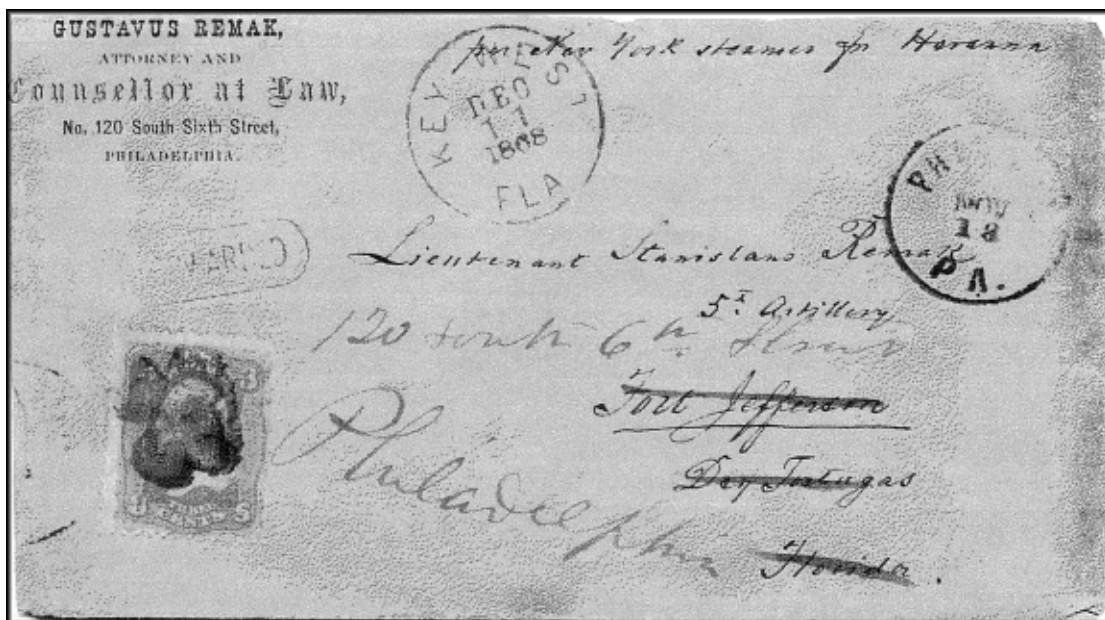 GUSTAVUS REMAK,
ATTORNEY AND
Counsellor at Law,
No. 120 South Sixth Street,
PHILADELPHIA.
per New York steamer for Havanna
KEY WEST
DEC
11
1868
FLA
PH
18
PA.
Lieutenant Stanislaus Remak
5t Artillery
120 South 6th Street
Fort Jefferson
Dry Tortugas
Philadelphia
Florida.
3 3
CENTS